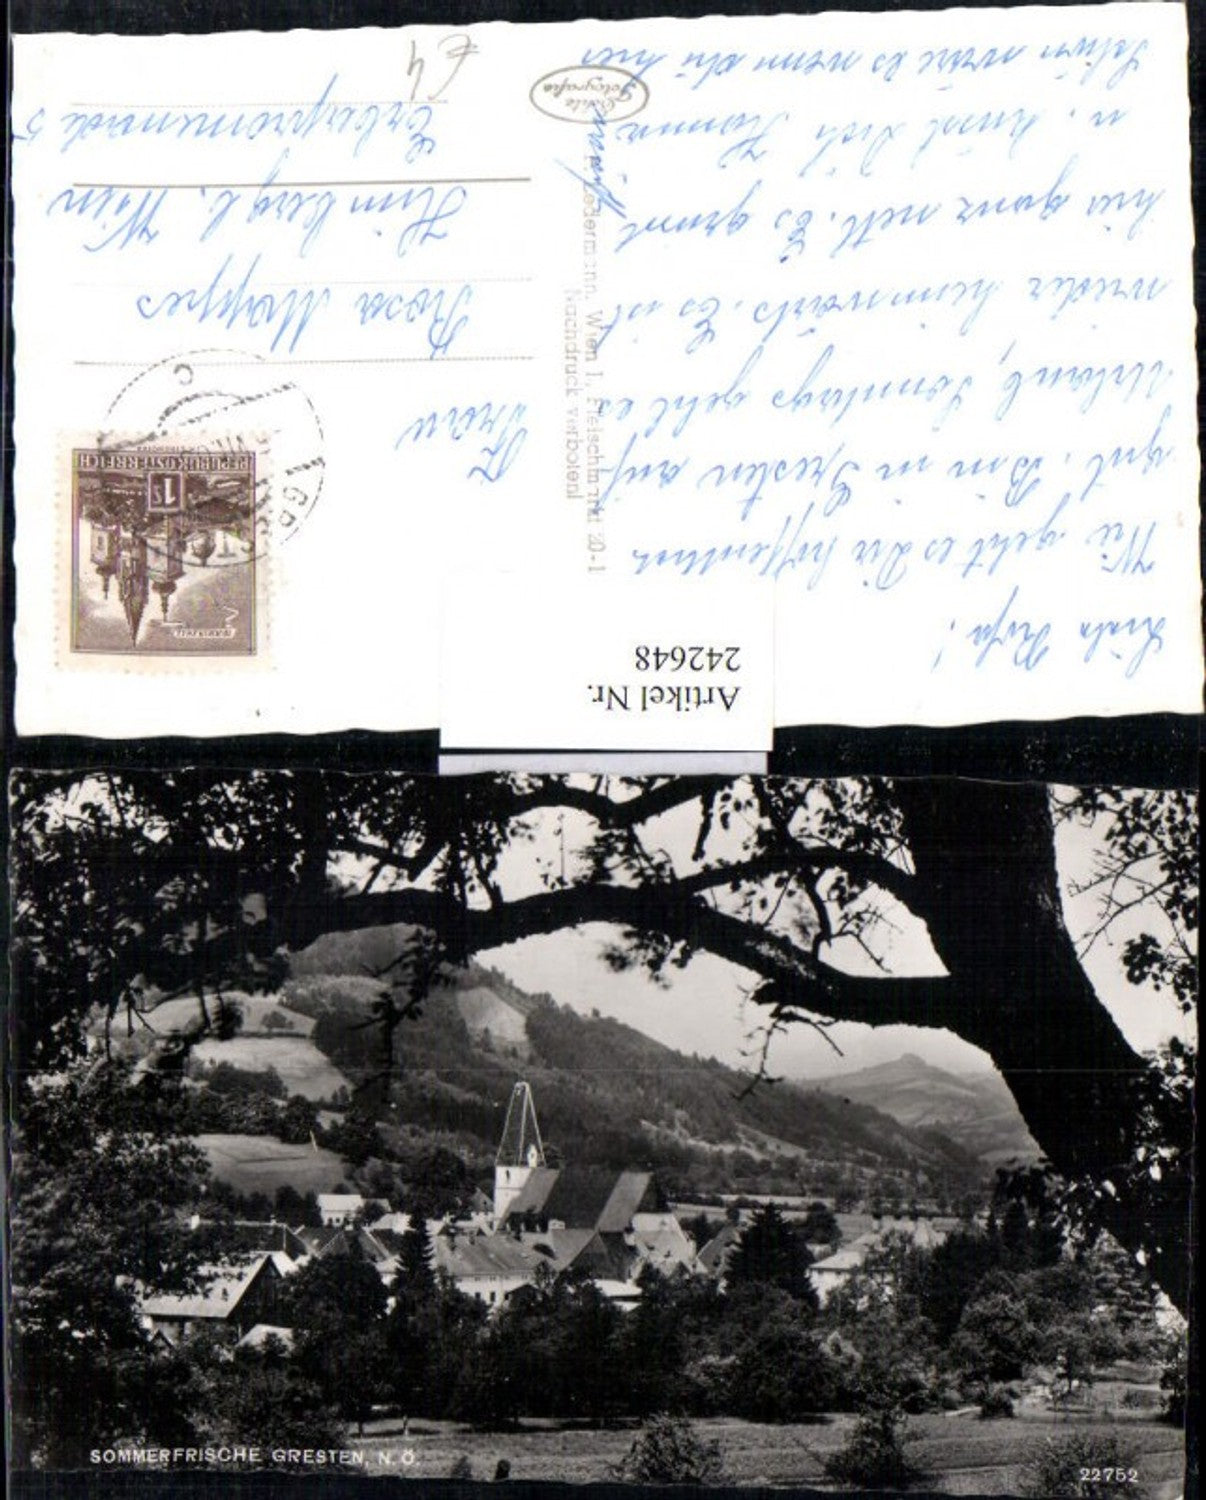 Liebe Rosa!
Wie geht es Dir hoffentlich
gut. Bin in Gresten auf
Urlaub, Sonntags geht es
wieder heimwärts. Es ist
hier ganz nett. Es grüsst
u. küsst Dich
Schön wäre es wenn du hier
wärst
Frau
Rosa
Himberg b. Wien
5
€ 4
Echte
Fotografie
Ledermann, Wien I, Fleischmarkt 20-1
Nachdruck verboten!
REPUBLIK ÖSTERREICH
1 S
Artikel Nr.
242648
SOMMERFRISCHE GRESTEN, N.Ö.
22752